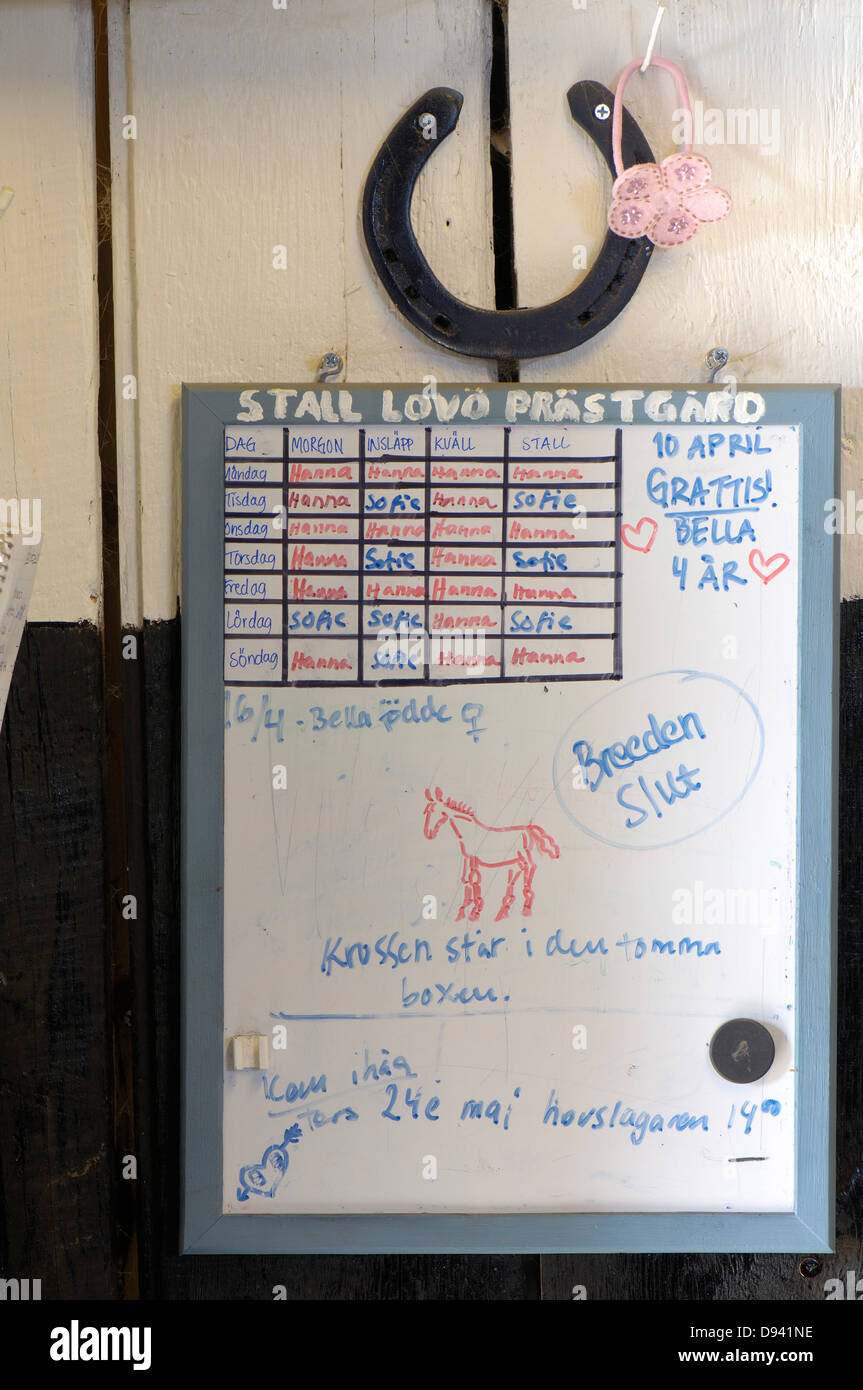 STALL LOVÖ PRÄSTGÅRD
DAG MORGON INSLÄPP KVÄLL STALL
Måndag Hanna Hanna Hanna Hanna
Tisdag Hanna Sofie Hanna Sofie
Onsdag Hanna Hanna Hanna Hanna
Torsdag Hanna Sofie Hanna Sofie
Fredag Hanna Hanna Hanna Hanna
Lördag Sofie Sofie Hanna Sofie
Söndag Hanna Sofie Hanna Hanna
10 APRIL
GRATTIS!
BELLA
4 ÅR
16/4 - Bella ödde ♀
Breeden
Slut
Krossen står i den tomma
boxen.
Kom ihåg
Tors 24e maj hovslagaren 14⁰⁰
alamy
D941NE
www.alamy.com